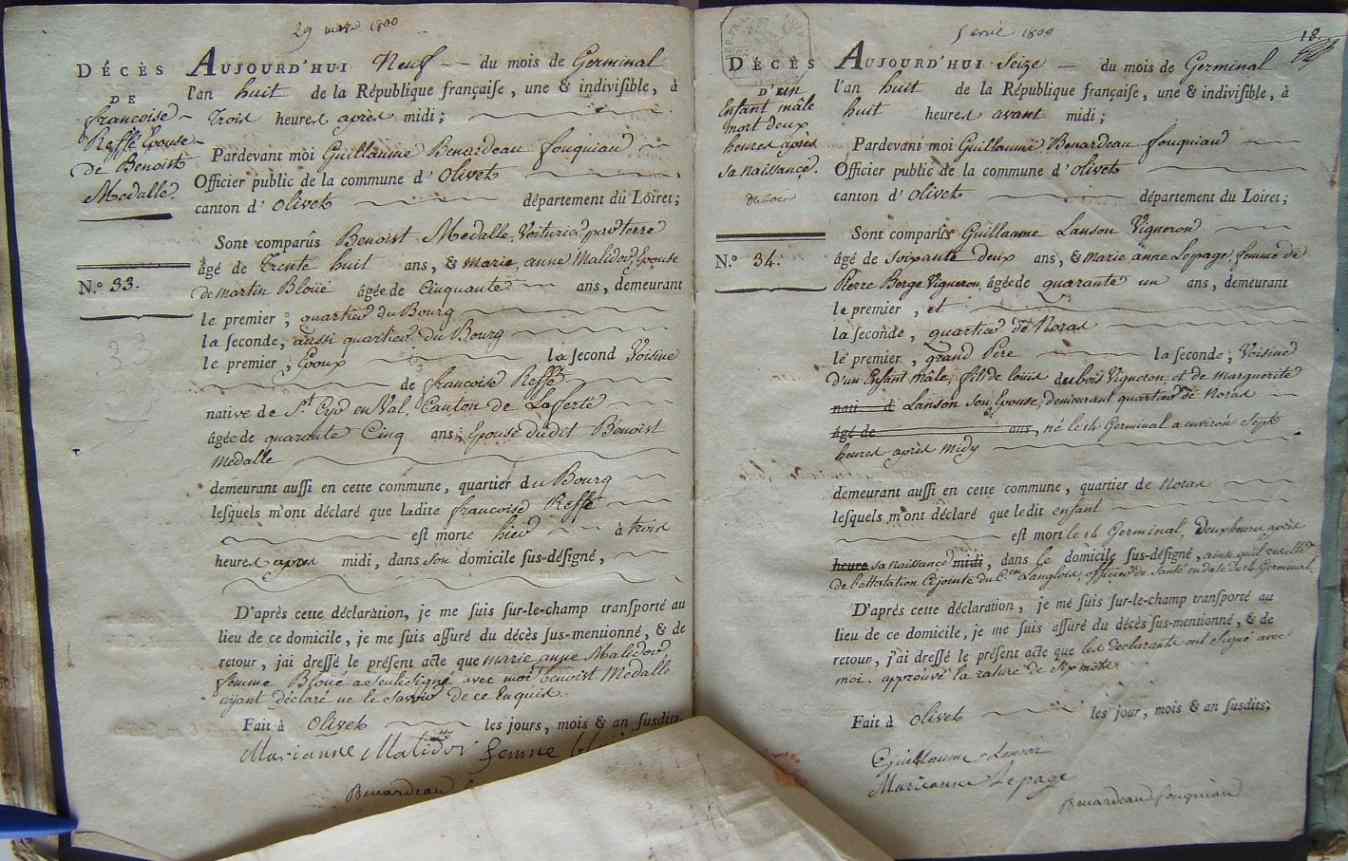 29 mars 1800
DÉCÈS
DE
françoise
Reffé Epouse
de Benoist
Medalle.
N.º 33.
33
AUJOURD'HUI Neuf du mois de Germinal
l'an huit de la République françaiſe, une & indiviſible, à
Trois heures après midi;
Pardevant moi Guillaume Benardeau fouquiau
Officier public de la commune d'Olivet
canton d'Olivet département du Loiret;
Sont comparûs Benoist Medalle, Voiturier par terre
âgé de Trente huit ans, & marie anne Malidor, Epouse
de martin Bloüé âgée de Cinquante ans, demeurant
le premier, quartier du Bourg
la ſeconde, aussi quartier du Bourg
le premier, Epoux la ſecond Voisine
de françoise Reffé
native de St. Cyr en Val, Canton de Laferté
âgée de quarante Cinq ans, Epouse dudit Benoist
Medalle
demeurant auſſi en cette commune, quartier du Bourg
leſquels m'ont déclaré que ladite françoise Reffé
est morte hier à trois
heures après midi, dans son domicile ſus-déſigné,
D'après cette déclaration, je me ſuis ſur-le-champ tranſporté au
lieu de ce domicile, je me ſuis aſſuré du décès ſus-mentionné, & de
retour, j'ai dreſſé le préſent acte que marie anne Malidor,
femme Bloüé a seule signé avec moi benoist Medalle
ayant déclaré ne le savoir de ce Enquis.
Fait à Olivet les jours, mois & an ſusdits,
Marianne Malidor femme
Benardeau
5 avril 1800
18
DÉCÈS
D'un
Enfant mâle
mort deux
heures après
sa naissance.
N.º 34.
AUJOURD'HUI Seize du mois de Germinal
l'an huit de la République françaiſe, une & indiviſible, à
huit heures avant midi;
Pardevant moi Guillaume Benardeau fouquiau
Officier public de la commune d'Olivet
canton d'Olivet département du Loiret;
Sont comparûs Guillaume Lanson Vigneron
âgé de Soixante deux ans, & Marie anne Lepage, femme de
Pierre Berge Vigneron, âgée de quarante un ans, demeurant
le premier, et
la ſeconde, quartier de Noras
le premier, grand Pere la ſeconde, Voisine
d'un Enfant mâle, fils de louis dubois Vigneron, et de marguerite
Lanson son Epouse, demeurant quartier de Noras
âgé de ans, né le 14 Germinal a environ Sept
heures après midy
demeurant auſſi en cette commune, quartier de Noras
leſquels m'ont déclaré que ledit enfant
est mort le 14 Germinal, Deux heures après
heure sa naissance midi, dans le domicile ſus-déſigné, ainsi qu'il résulte
de l'attestation Cyjointe du Cen Langlois, officier de Santé en date du 14 Germinal.
D'après cette déclaration, je me ſuis ſur-le-champ tranſporté au
lieu de ce domicile, je me ſuis aſſuré du décès ſus-mentionné, & de
retour, j'ai dreſſé le préſent acte que les declarants ont signé avec
moi. approuvé la rature de six mots.
Fait à Olivet les jour, mois & an ſusdits,
Guillaume Lanson
Marianne Lepage
Benardeau fouquiau